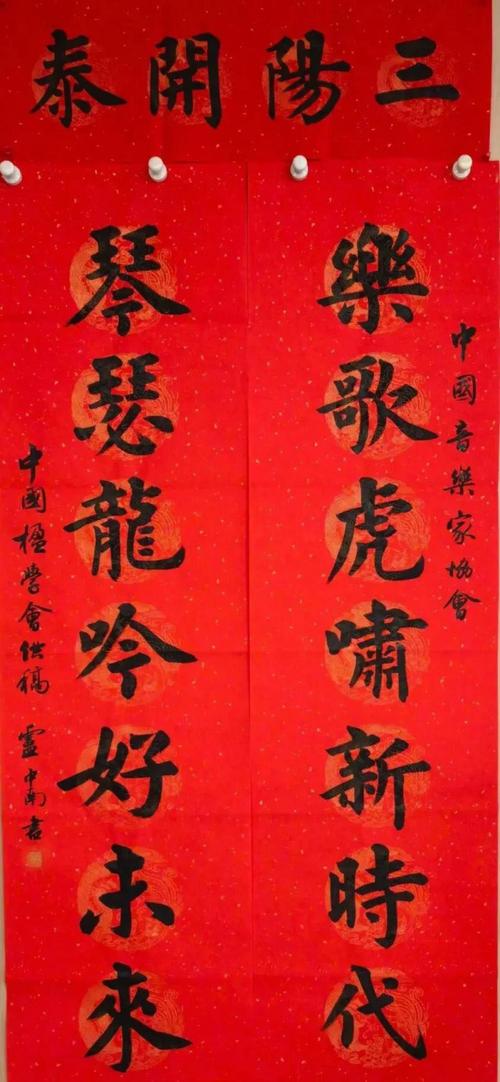 三陽開泰
中國音樂家協會
樂歌虎嘯新時代
琴瑟龍吟好未來
中國楹學會供稿 盧中南書